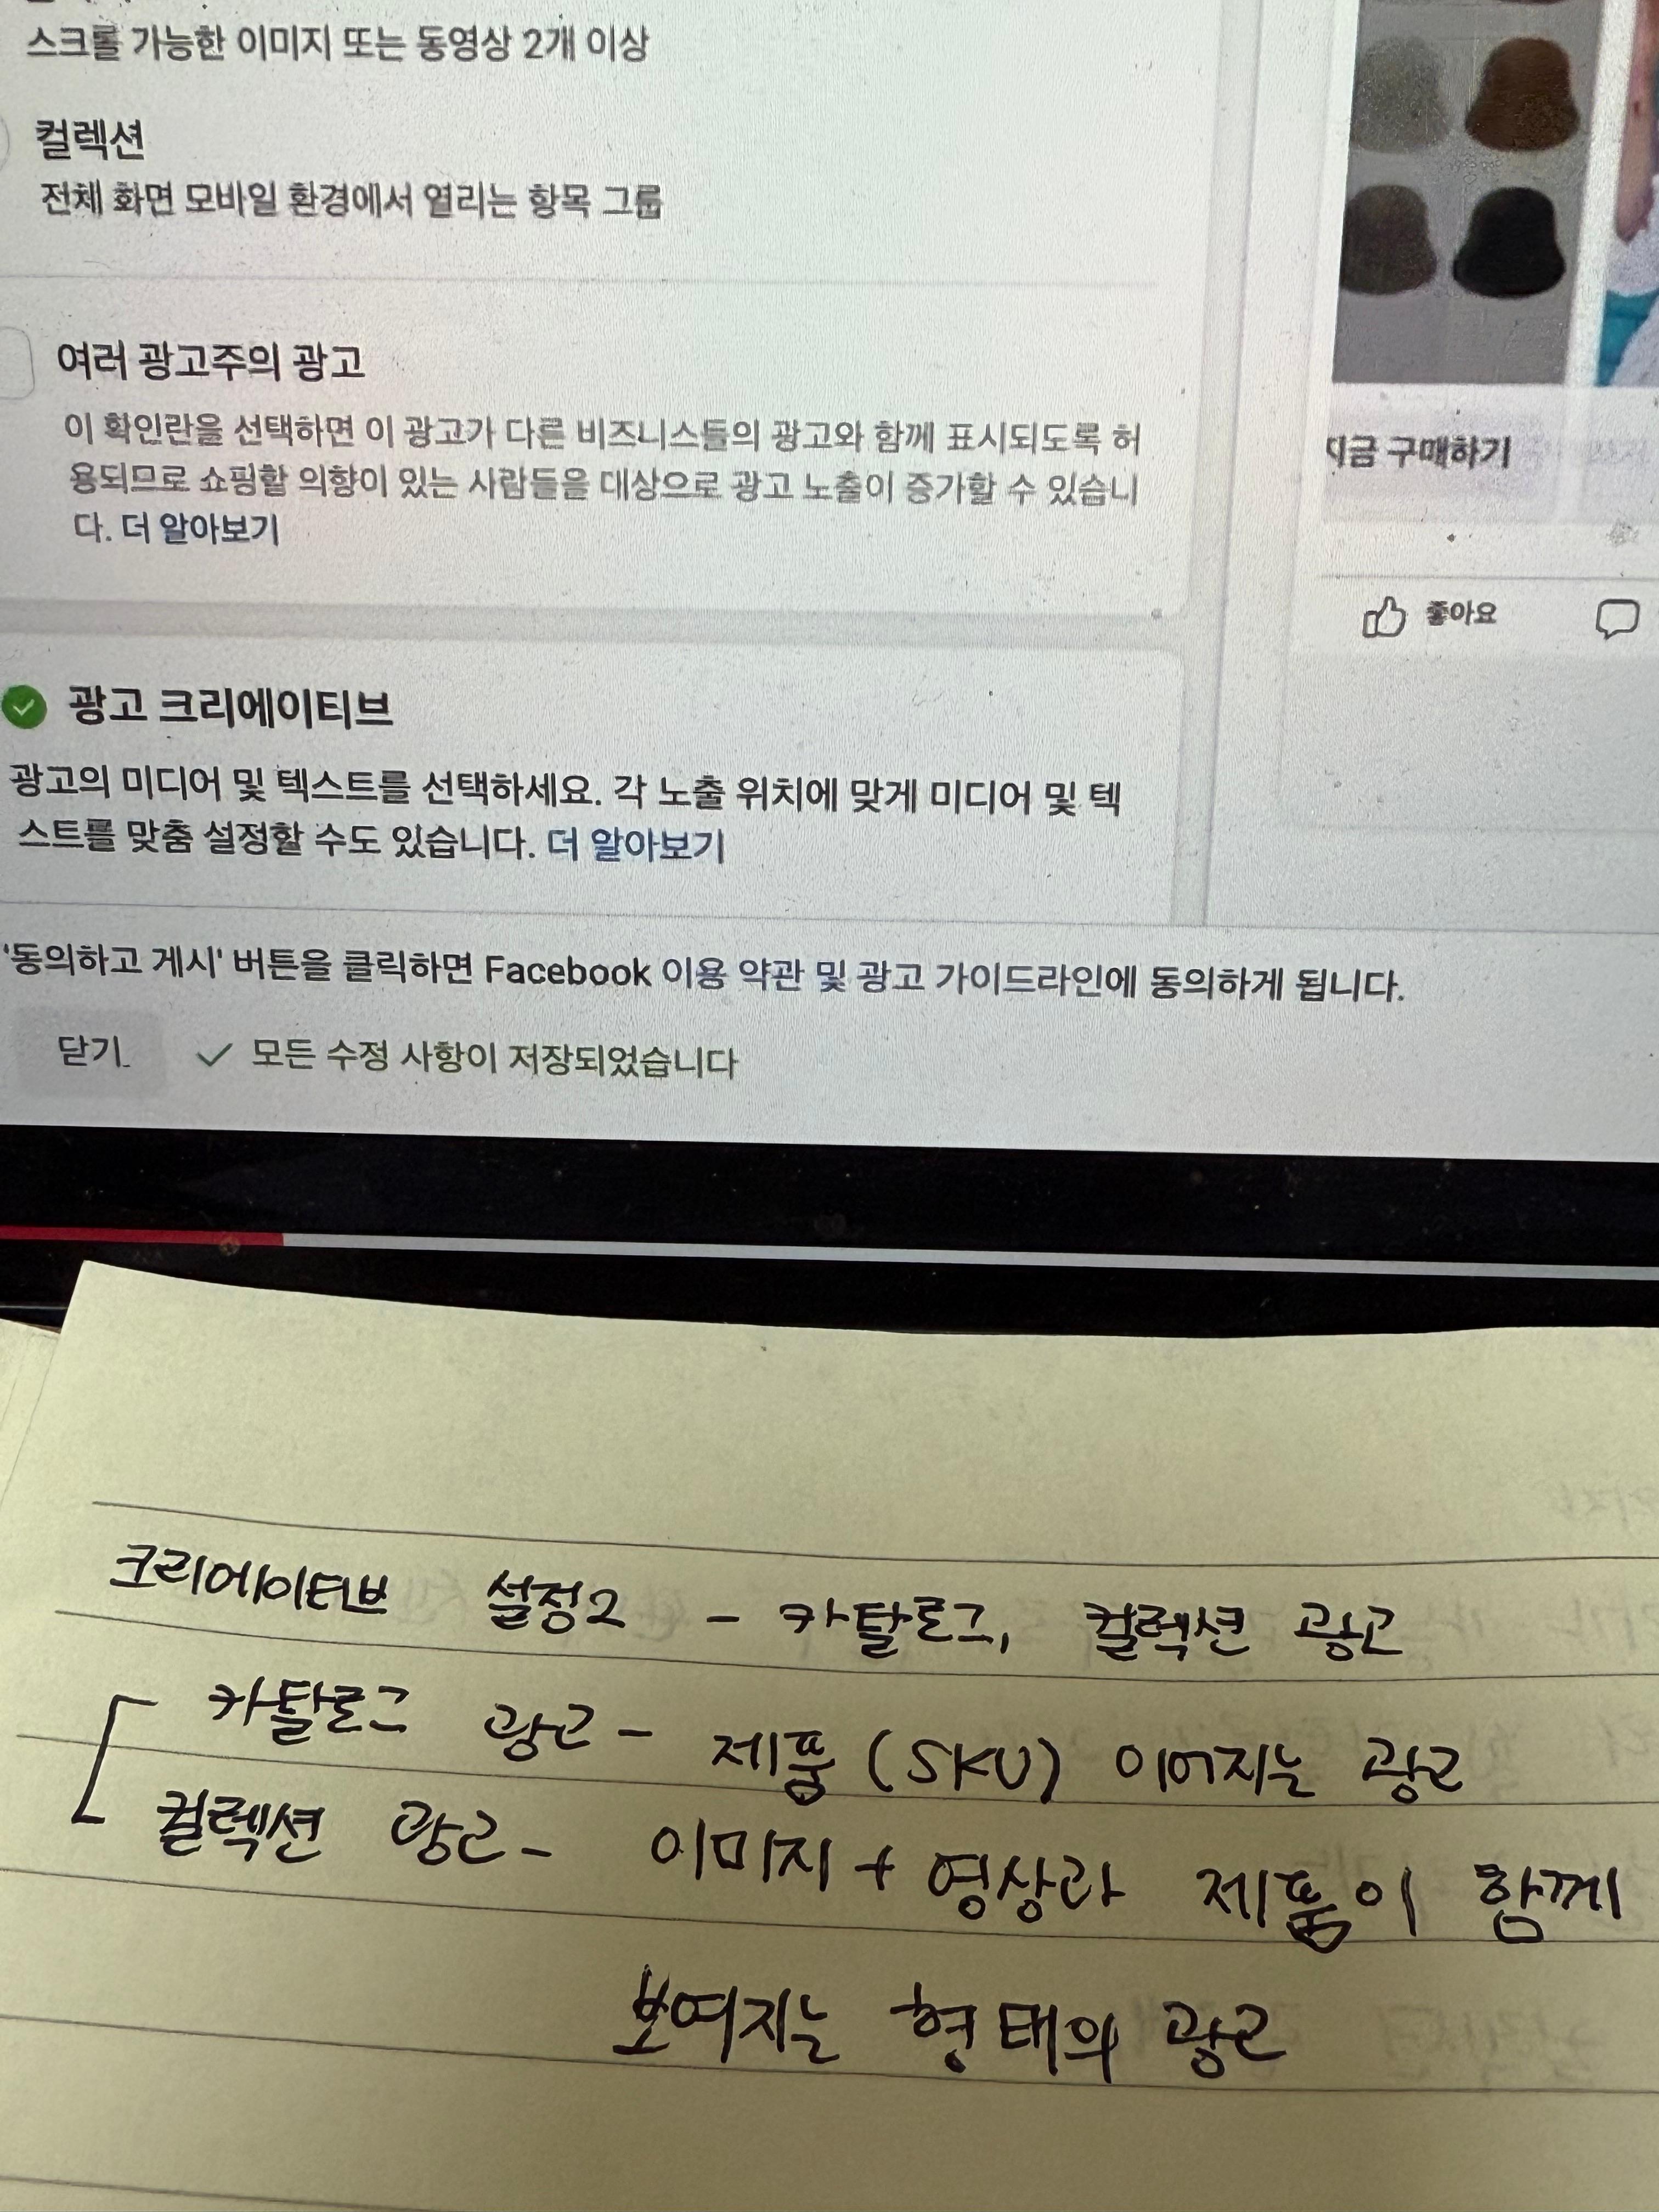 스크롤 가능한 이미지 또는 동영상 2개 이상
컬렉션
전체 화면 모바일 환경에서 열리는 항목 그룹
여러 광고주의 광고
이 확인란을 선택하면 이 광고가 다른 비즈니스들의 광고와 함께 표시되도록 허
용되므로 쇼핑할 의향이 있는 사람들을 대상으로 광고 노출이 증가할 수 있습니
다. 더 알아보기
지금 구매하기
좋아요
광고 크리에이티브
광고의 미디어 및 텍스트를 선택하세요. 각 노출 위치에 맞게 미디어 및 텍
스트를 맞춤 설정할 수도 있습니다. 더 알아보기
'동의하고 게시' 버튼을 클릭하면 Facebook 이용 약관 및 광고 가이드라인에 동의하게 됩니다.
닫기
모든 수정 사항이 저장되었습니다
크리에이티브 설정2 - 카탈로그, 컬렉션 광고
카탈로그 광고 - 제품 (SKU) 이어지는 광고
컬렉션 광고 - 이미지 + 영상과 제품이 함께
보여지는 형태의 광고